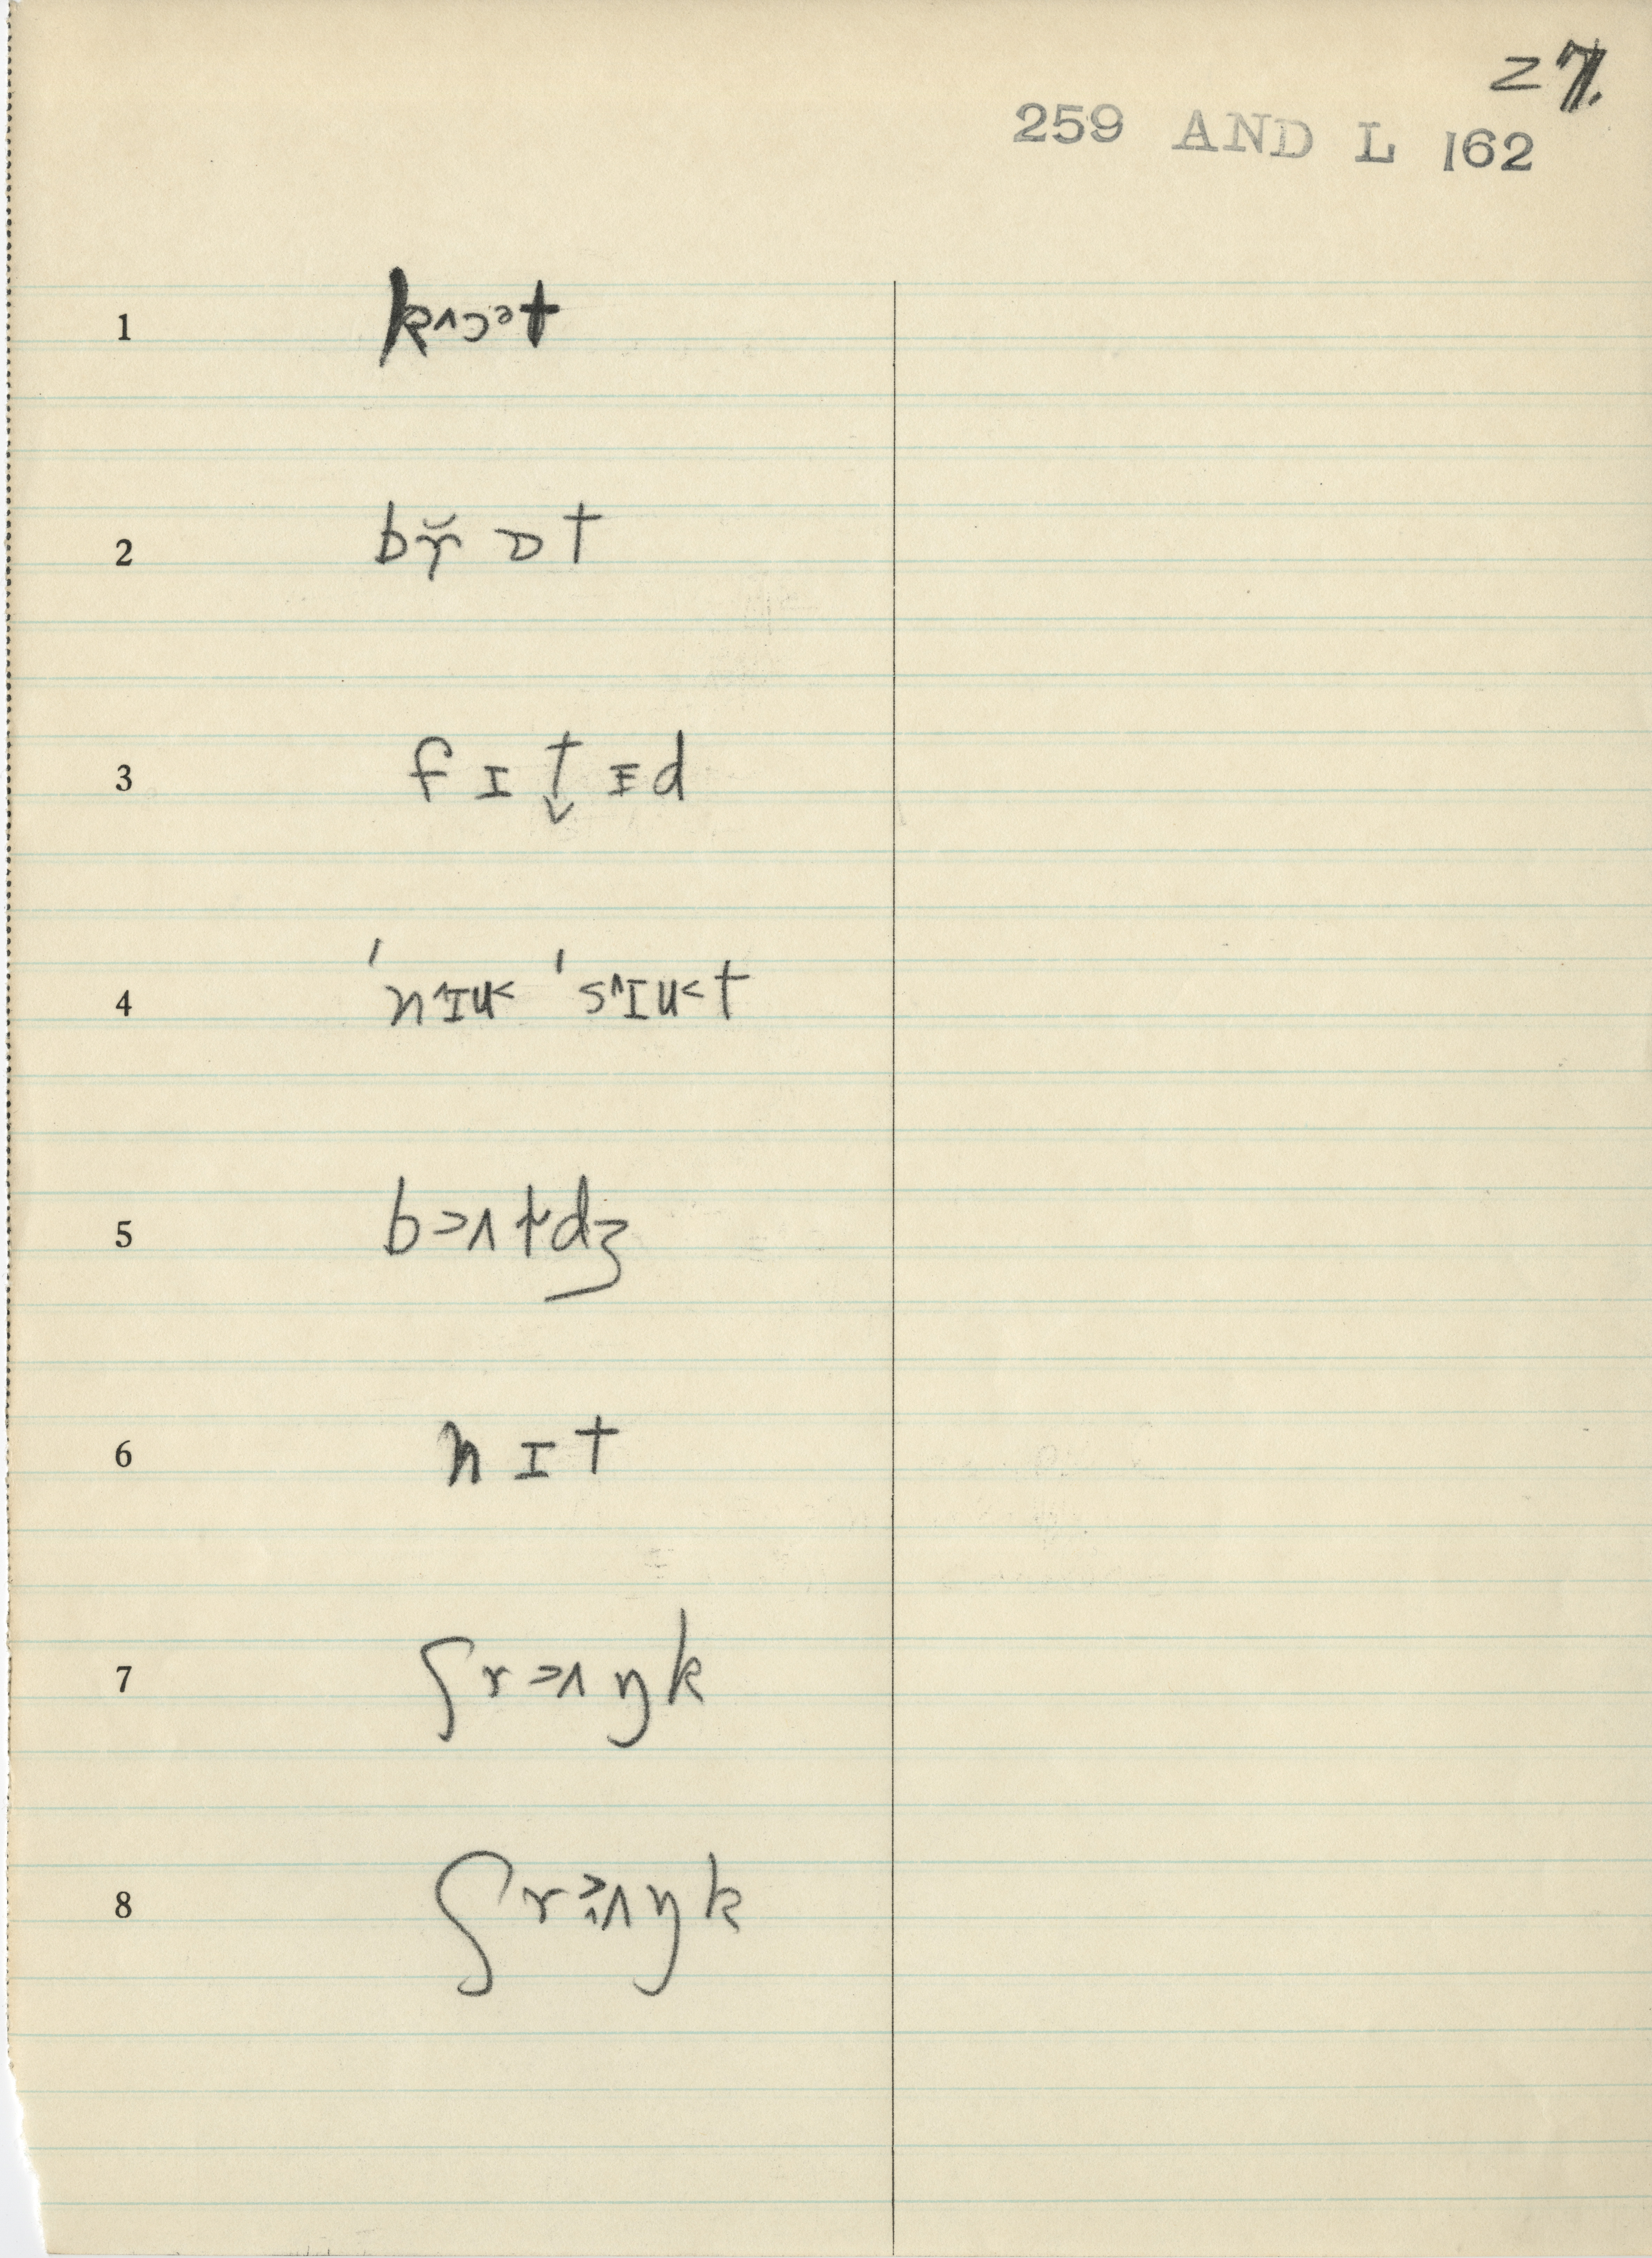 27.
259 AND L 162
1 kɔ˄ᵊt
2 br̆ɒt
3 fɪt̬ɪd
4 ˈnɪ˄u˂ ˈsɪ˄u˂t
5 bɔ˄tdʒ
6 nɪt
7 ʃrɜʌŋk
8 ʃrɜʌŋk